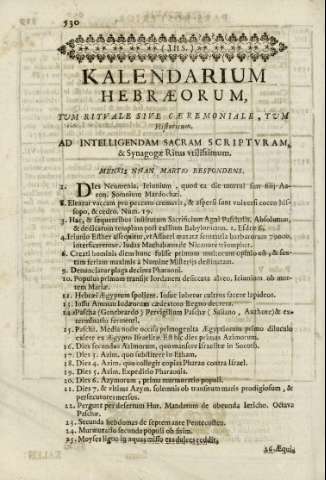 530
(IHS.)
KALENDARIUM
HEBRÆORUM,
TUM RITUALE SIVE CÆREMONIALE, TUM
Historicum.
AD INTELLIGENDAM SACRAM SCRIPTVRAM,
& Synagogæ Ritus vtilissimum.
MENSIS NISAN MARTIO RESPONDENS.
1. Dies Neomenia, Ieiunium, quod ea die mortui sint filij Aa-
ron. Somnium Mardochæi.
Eleazar vaccam pro peccato cremavit, & aspersi sunt
sopo, & cedro. Num. 19.
3. Hac, & sequentibus institutum Sacrificium Agni Paschalis. Absolutum,
& dedicatum templum post exilium Babylonicum. 1. Esdræ 6.
4. Ieiunio Esther assequitur, vt Assueri mutata sententia barbarorum 75000.
interficerentur. Iudas Machabæus de Nicanore triumphat.
6. Creati hominis diem hunc fuisse primum multorum opinio est, &
9. Denunciatur plaga decima Pharaoni.
10. Populus primum transijt Iordanem desiccato alveo. Ieiunium ob mor-
tem Mariæ.
11. Hebræi Ægyptum spoliant. Iosue
13. Iussu Amman Iudæorum cædes toto Regno decreta.
14. Pascha (Genebrardo) Pervigilium Paschæ (
15. Pascha. Media nocte occisa primogenita Ægyptiorum primo diluculo
exiere ex Ægypto Israelitæ. Est hic dies primus Azimorum.
16. Dies secundus Azimorum, quo mansere Israelitæ in Socoth.
17. Dies 3. Azim. quo substitere in Etham.
18. Dies 4. Azim. quo collegit copias Pharao contra Israel.
19. Dies 5. Azim. Expeditio Pharaonis.
20. Dies 6. Azymorum, primo murmuratio populi.
21. Dies 7. & vltima Azym. solemnis ob transitum maris prodigiosum, &
persecutores mersos.
22. Pergunt per desertum Hur. Mandatum de obeunda Iericho. Octava
Paschæ.
23. Secunda hebdomas de septem ante Pentecosten.
24. Murmuratio secunda populi ob sitim.
25. Moyses ligno in aquas misso eas dulces reddit.
26. Æqui-